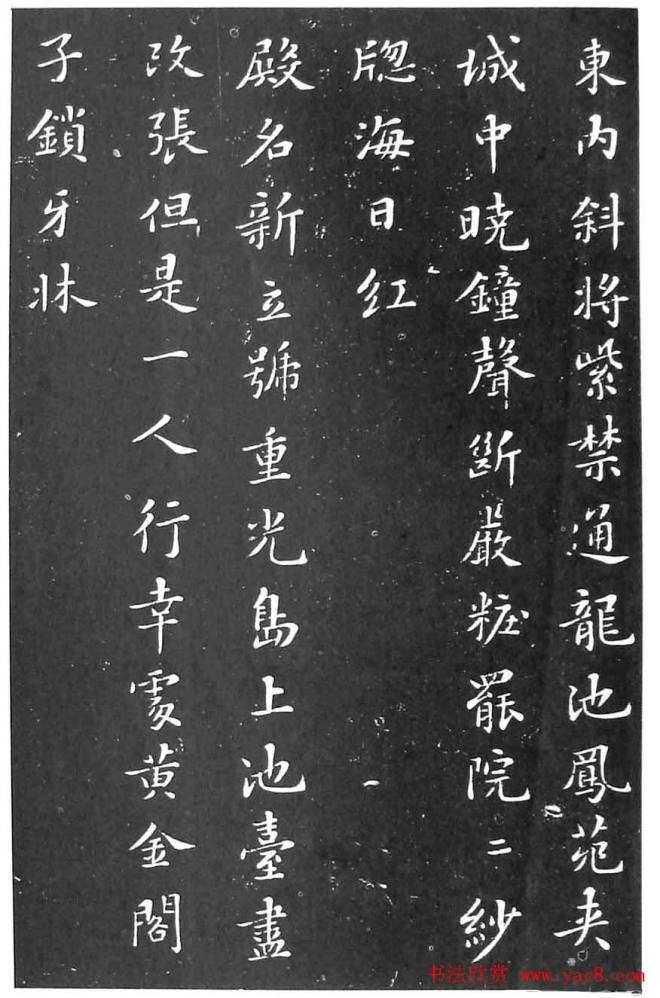 東内斜将紫禁通龍池鳳苑夾
城中曉鐘聲斷嚴粧罷院二紗
牕海日紅
殿名新立號重光島上池臺盡
改張但是一人行幸處黄金閣
子鎖牙牀
书法欣赏 www.yac8.com